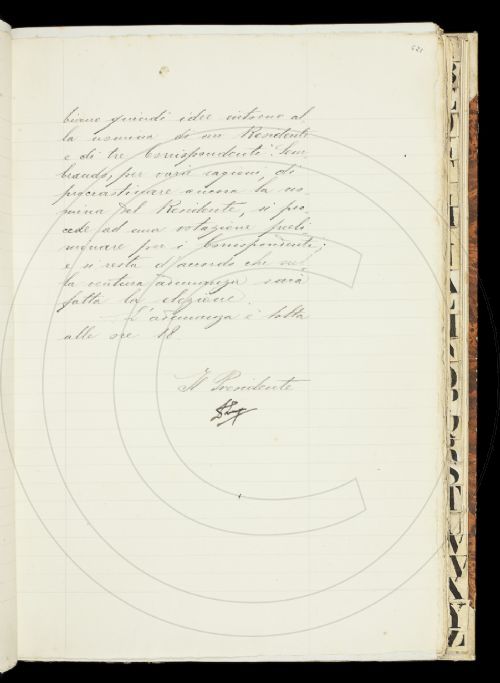 621
biano quindi idee intorno al
la nomina di un Residente
e di tre Corrispondenti. Sem
brando, per varie ragioni, di
procrastinare ancora la no-
mina del Residente, si pro-
cede ad una votazione preli-
minare per i Corrispondenti;
e si resta d'accordo che nel
la ventura adunanza sarà
fatta la elezione.
L'adunanza è tolta
alle ore 18
Il Presidente
B
L
T
U
V
X
Y
Z